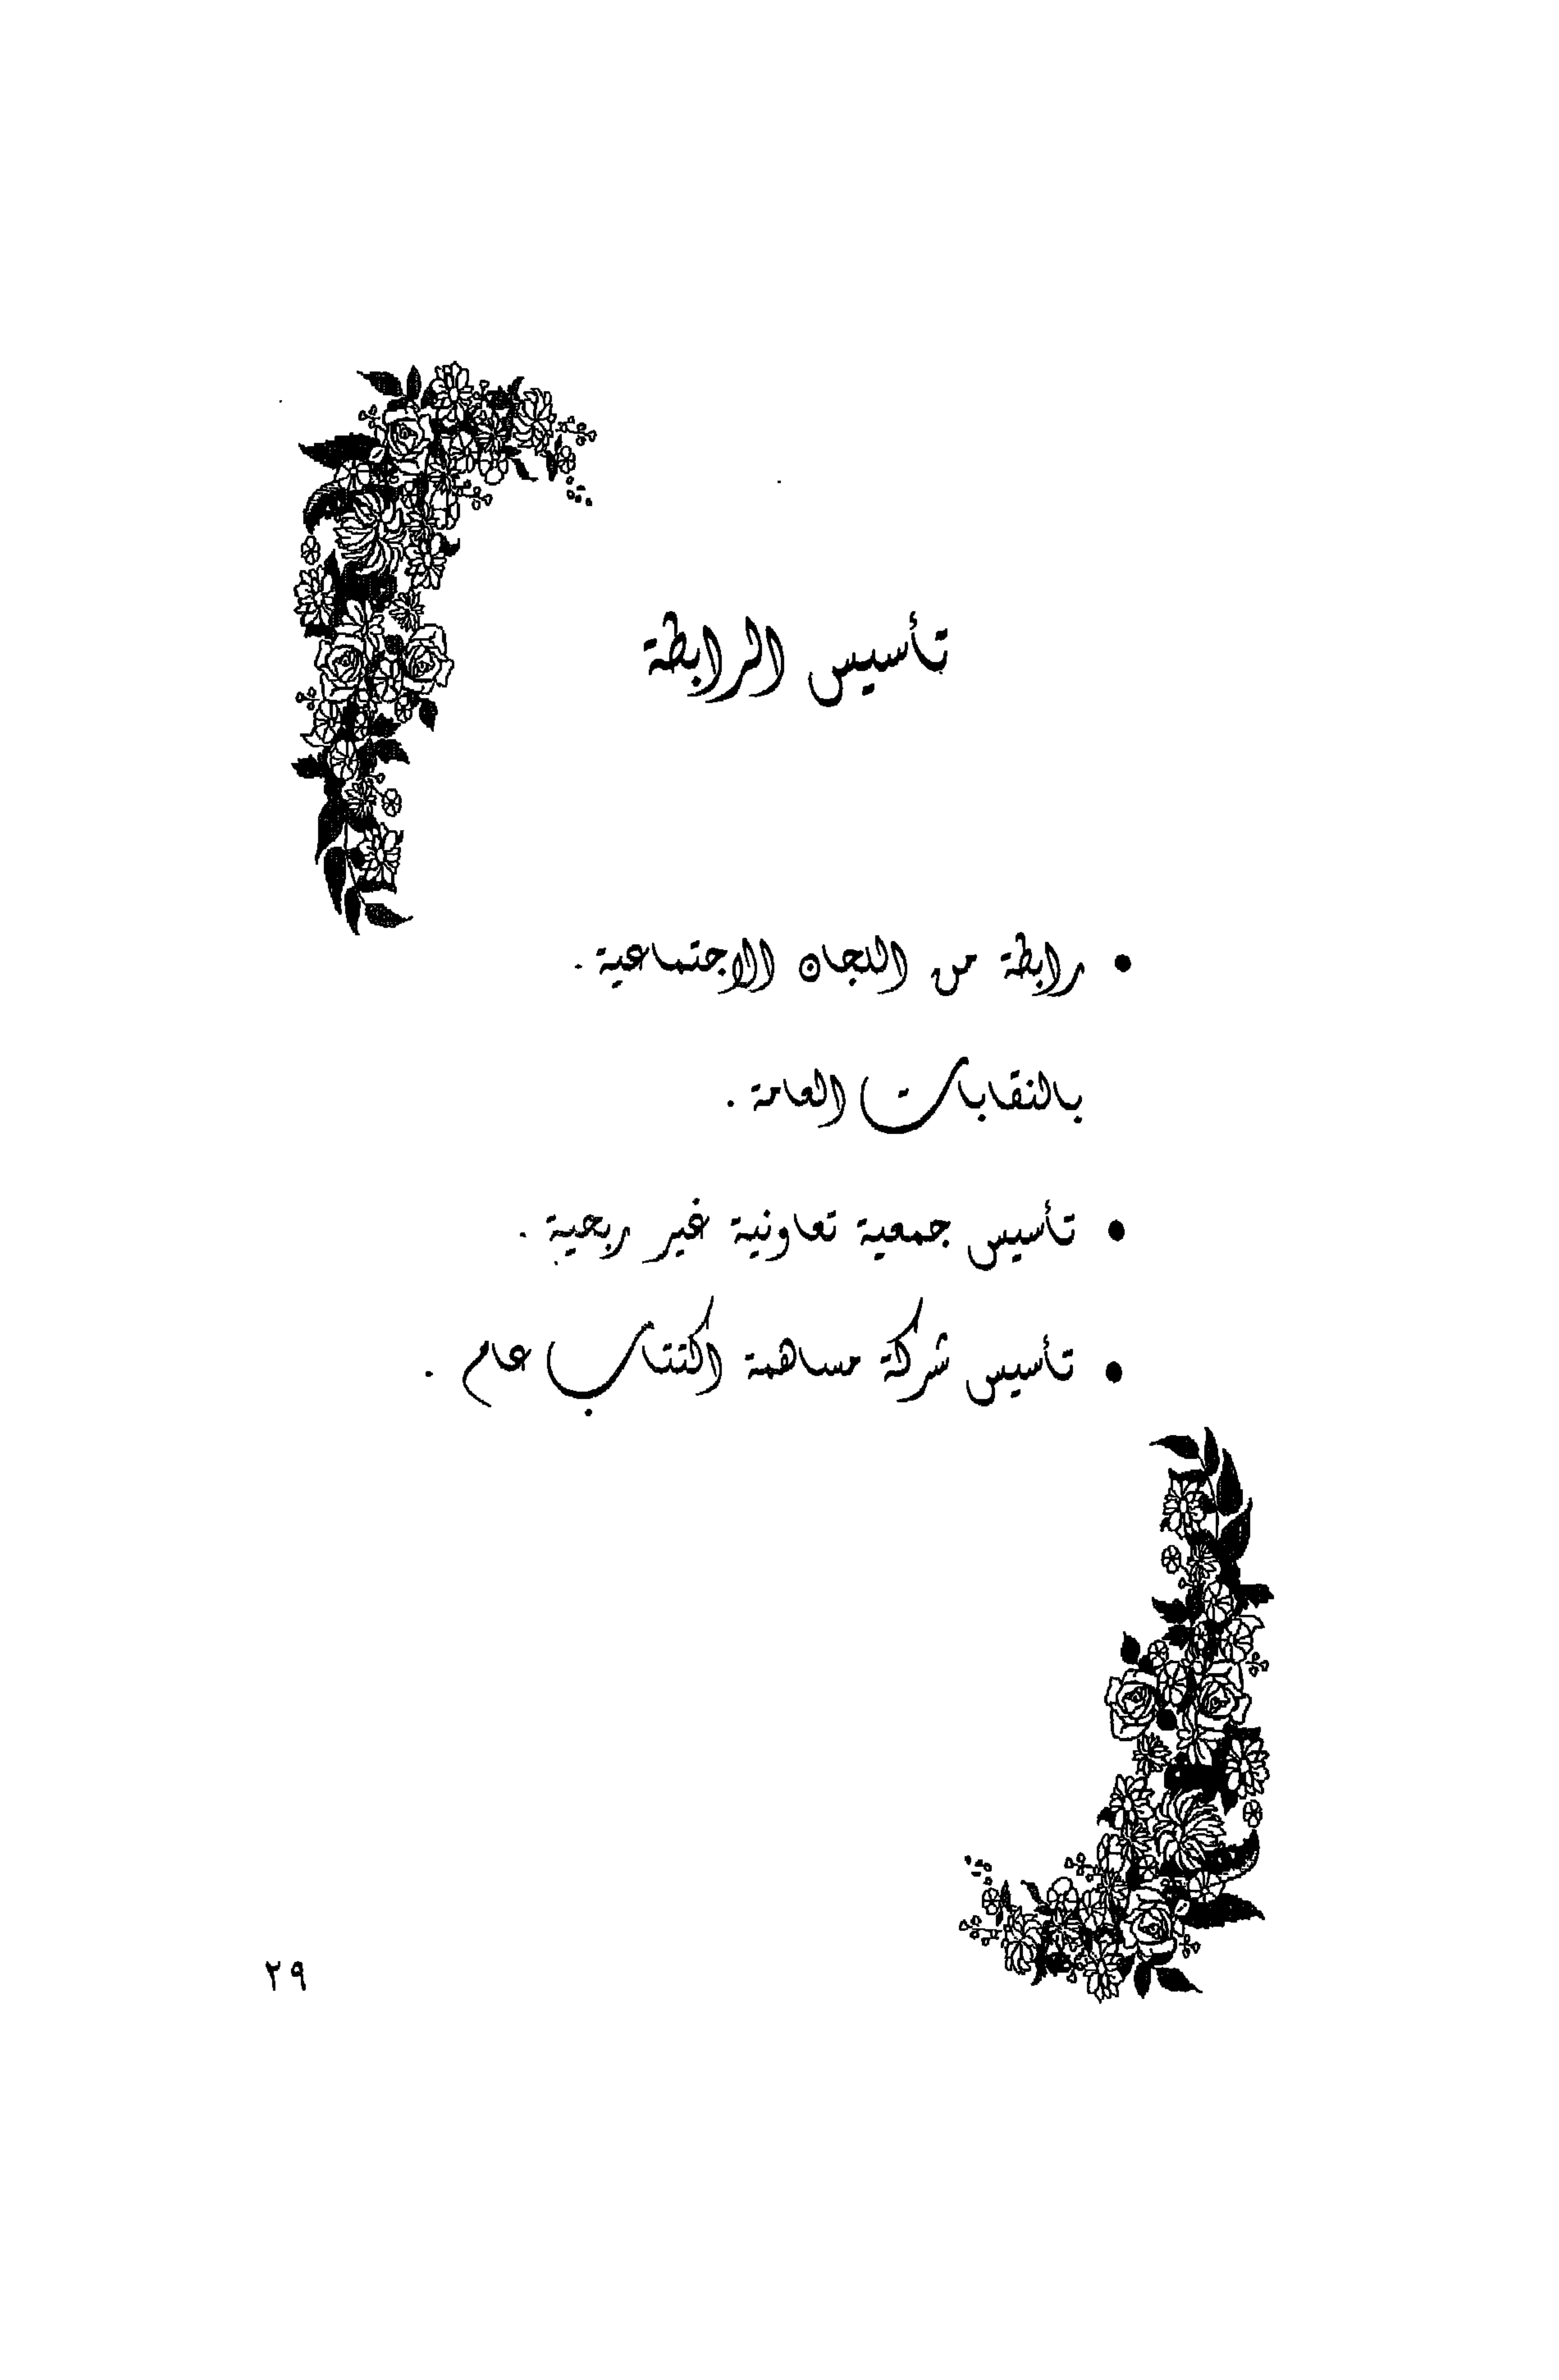 تأسيس الرابطة
• رابطة من اللجان الاجتماعية .
بالنقابات العامة .
• تأسيس جمعية تعاونية غير ربحية .
• تأسيس شركة مساهمة اكتتاب عام .
٢٩